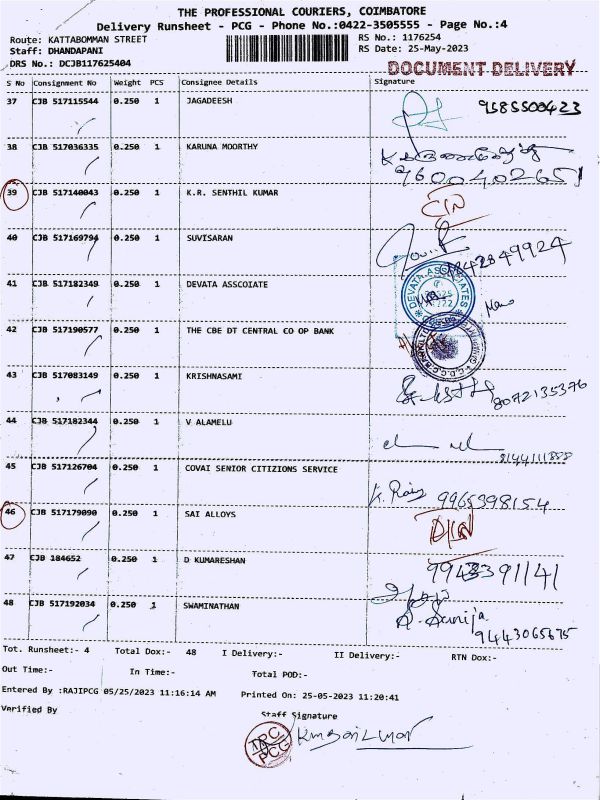 THE PROFESSIONAL COURIERS, COIMBATORE
Delivery Runsheet - PCG - Phone No.:0422-3505555 - Page No.:4
Route: KATTABOMMAN STREET RS No.: 1176254
Staff: DHANDAPANI RS Date: 25-May-2023
DRS No.: DCJB117625404 DOCUMENT DELIVERY
S No Consignment No Weight PCS Consignee Details Signature
37 CJB 517115544 0.250 1 JAGADEESH 9585500423
38 CJB 517036335 0.250 1 KARUNA MOORTHY
9600402651
39 CJB 517140043 0.250 1 K.R. SENTHIL KUMAR
40 CJB 517169794 0.250 1 SUVISARAN 9842849924
41 CJB 517182349 0.250 1 DEVATA ASSCOIATE DEVATA ASSOCIATES
42 CJB 517190577 0.250 1 THE CBE DT CENTRAL CO OP BANK
43 CJB 517083149 0.250 1 KRISHNASAMI 8072135376
44 CJB 517182344 0.250 1 V ALAMELU
8144111888
45 CJB 517126704 0.250 1 COVAI SENIOR CITIZIONS SERVICE
9965398154
46 CJB 517179090 0.250 1 SAI ALLOYS
47 CJB 184652 0.250 1 D KUMARESHAN
48 CJB 517192034 0.250 1 SWAMINATHAN
9443065675
Tot. Runsheet:- 4 Total Dox:- 48 I Delivery:- II Delivery:- RTN Dox:-
Out Time:- In Time:- Total POD:-
Entered By :RAJIPCG 05/25/2023 11:16:14 AM Printed On: 25-05-2023 11:20:41
Verified By Staff Signature
TPC
PCG